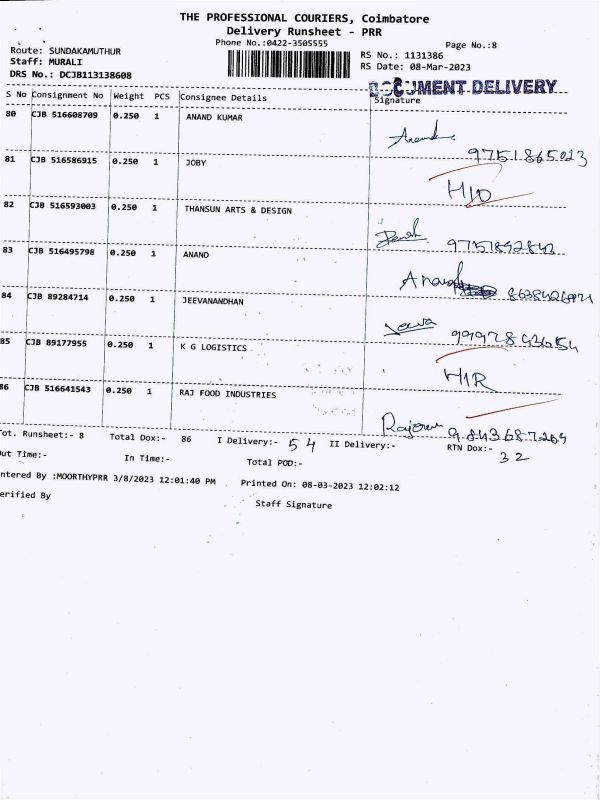 THE PROFESSIONAL COURIERS, Coimbatore
Delivery Runsheet - PRR
Phone No.:0422-3505555
Page No.:8
Route: SUNDAKAMUTHUR
RS No.: 1131386
Staff: MURALI
RS Date: 08-Mar-2023
DRS No.: DCJB113138608
DOCUMENT DELIVERY
S No Consignment No Weight PCS Consignee Details Signature
80 CJB 516608709 0.250 1 ANAND KUMAR
9751865023
81 CJB 516586915 0.250 1 JOBY
H/D
82 CJB 516593003 0.250 1 THANSUN ARTS & DESIGN
83 CJB 516495798 0.250 1 ANAND
Anand
84 CJB 89284714 0.250 1 JEEVANANDHAN
85 CJB 89177955 0.250 1 K G LOGISTICS
H/R
86 CJB 516641543 0.250 1 RAJ FOOD INDUSTRIES
9843687209
ot. Runsheet:- 8 Total Dox:- 86 I Delivery:- 54 II Delivery:- RTN Dox:- 32
ut Time:- In Time:- Total POD:-
ntered By :MOORTHYPRR 3/8/2023 12:01:40 PM Printed On: 08-03-2023 12:02:12
erified By Staff Signature